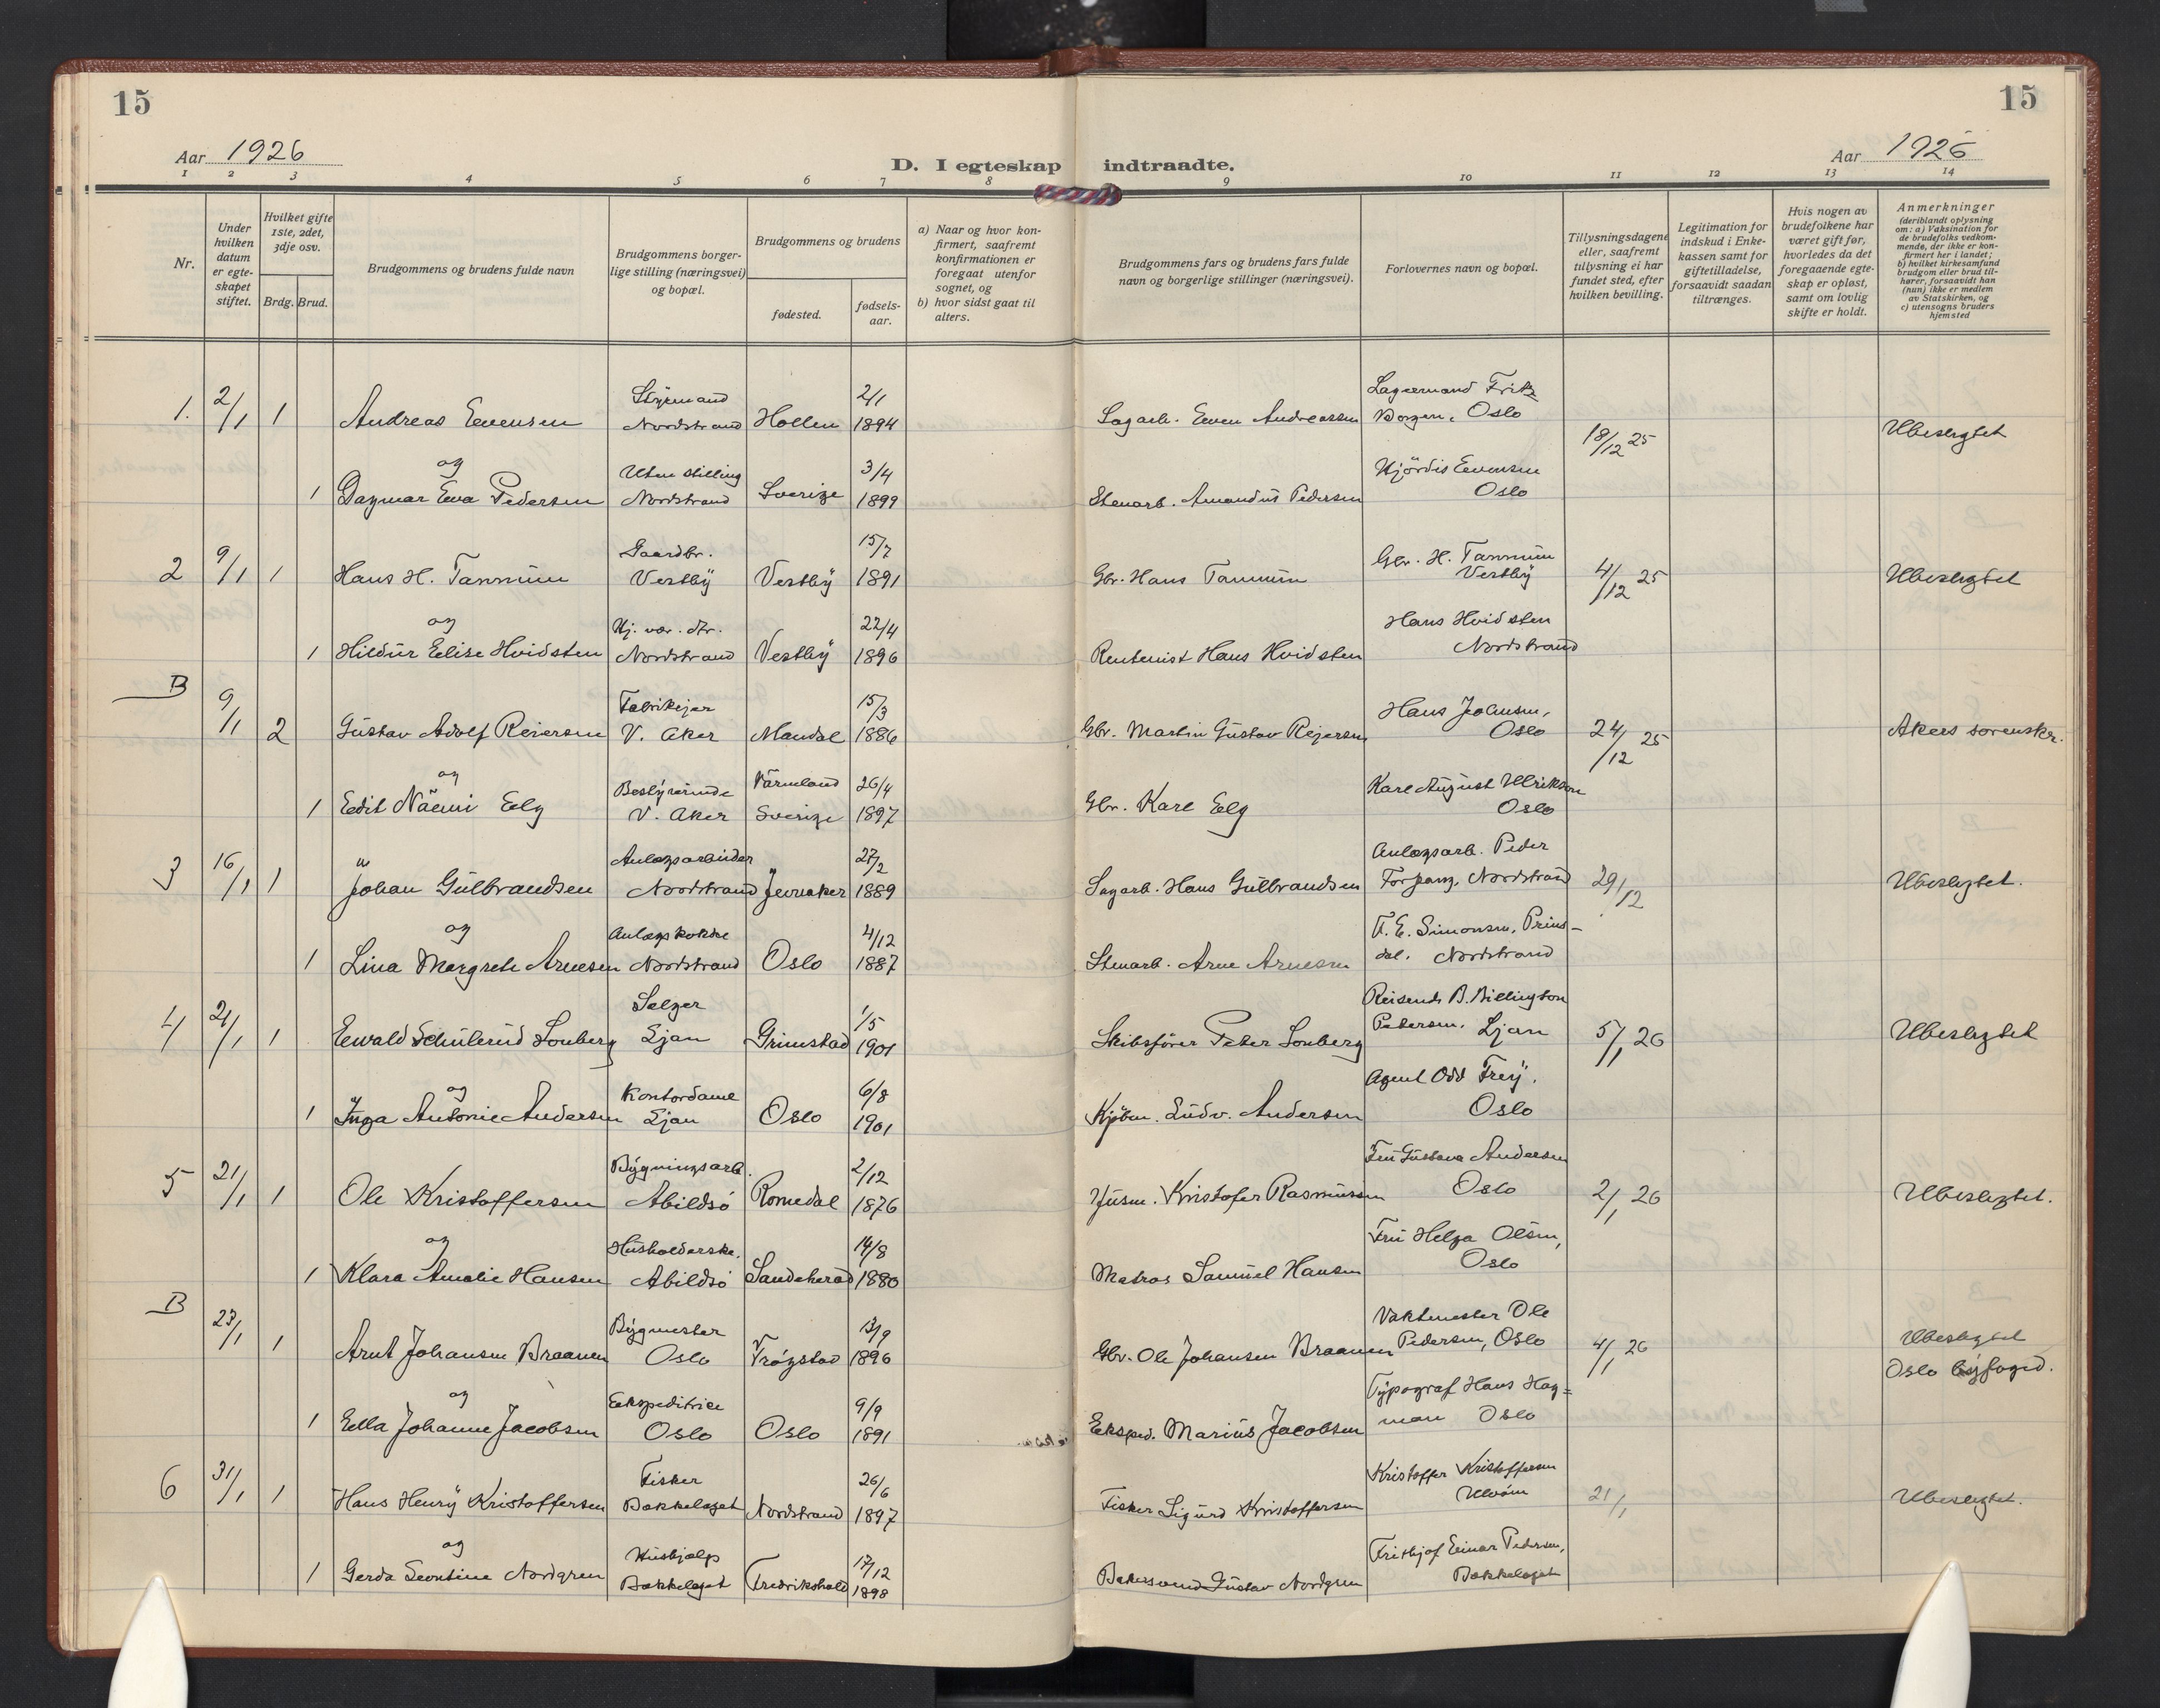 15
15
Aar 1926
D. I egteskap indtraadte.
Aar 1926
1 2 3 4 5 6 7 8 9 10 11 12 13 14
Nr.
Under hvilken datum er egte-skapet stiftet.
Hvilket gifte 1ste, 2det, 3dje osv.
Brdg. Brud.
Brudgommens og brudens fulde navn
Brudgommens borger-lige stilling (næringsvei) og bopæl.
Brudgommens og brudens
fødested.
fødsels-aar.
a) Naar og hvor kon-firmert, saafremt konfirmationen er foregaat utenfor sognet, og
b) hvor sidst gaat til alters.
Brudgommens fars og brudens fars fulde navn og borgerlige stillinger (næringsvei).
Forlovernes navn og bopæl.
Tillysningsdagene eller, saafremt tillysning ei har fundet sted, efter hvilken bevilling.
Legitimation for indskud i Enke-kassen samt for giftetilladelse, forsaavidt saadan tiltrænges.
Hvis nogen av brudefolkene har været gift før, hvorledes da det foregaaende egte-skap er opløst, samt om lovlig skifte er holdt.
Anmerkninger (deriblandt oplysning om: a) Vaksination for de brudefolks vedkom-mende, der ikke er kon-firmert her i landet; b) hvilket kirkesamfund brudgom eller brud til-hører, forsaavidt han (hun) ikke er medlem av Statskirken, og c) utensogns bruders hjemsted
1. 2/1 1 Andreas Evensen Styrmand Nordstrand Hollen 2/1 1894 Sagarb. Even Andreassen Lagermand Fritz Borgen, Oslo 18/12 25 Ubeslegtet
og
1 Dagmar Eva Pedersen Uten stilling Nordstrand Sverige 3/4 1899 Stenarb. Amandus Pedersen Hjördis Evensen Oslo
2 9/1 1 Hans H. Tannum Gaardbr. Vestby Vestby 15/7 1891 Gbr. Hans Tannum Gbr. H. Tannum Vestby 4/12 25 Ubeslegtet
og
1 Hildur Elise Hvidsten Hj. vær. dtr. Nordstrand Vestby 22/4 1896 Rentenist Hans Hvidsten Hans Hvidsten Nordstrand
B 9/1 2 Gustav Adolf Reiersen Fabrikejer V. Aker Mandal 15/3 1886 Gbr. Martin Gustav Rejersen Hans Johnsen, Oslo 24/12 25 Akers sorenskr.
og
1 Edit Näemi Elg Bestyrerinde V. Aker Värmland Sverige 26/4 1897 Gbr. Karl Elg Karl August Ulrikson Oslo
3 16/1 1 Johan Gulbrandsen Anlægsarbeider Nordstrand Jevnaker 27/2 1889 Sagarb. Hans Gulbrandsen Anlægsarb. Peder Forfang, Nordstrand 29/12 Ubeslegtet.
og
1 Lina Margrete Arnesen Anlægskokke Nordstrand Oslo 4/12 1887 Stenarb. Arne Arnesen F. E. Simonsen, Prins-dal, Nordstrand
4 21/1 1 Ewald Schulerud Sonberg Selger Ljan Grimstad 1/5 1901 Skibsfører Peter Sonberg Reisende B. Billington Pedersen, Ljan 5/1 26 Ubeslegtet
og
1 Inga Antonie Andersen Kontordame Ljan Oslo 6/8 1901 Kjøbm. Ludv. Andersen Agent Odd Frey, Oslo
5 21/1 1 Ole Kristoffersen Bygningsarb. Abildsø Romedal 2/12 1876 Husm. Kristofer Rasmussen Fru Gustava Andersen Oslo 2/1 26 Ubeslegtet.
og
1 Klara Amalie Hansen Husholderske. Abildsø Sandeherad 14/8 1880 Matros Samuel Hansen Fru Helga Olsen, Oslo
B 23/1 1 Arnt Johansen Braanen Bygmester Oslo Trøgstad 13/9 1896 Gbr. Ole Johansen Braanen Vaktmester Ole Pedersen, Oslo 4/1 26 Ubeslegtet Oslo byfoged.
og
1 Ella Johanne Jacobsen Ekspeditrice Oslo Oslo 9/9 1891 Eksped. Marius Jacobsen Typograf Hans Hag=man Oslo
6 31/1 1 Hans Henry Kristoffersen Fisker Bækkelaget Nordstrand 26/6 1897 Fisker Sigurd Kristoffersen Kristoffer Kristoffersen Ulvøen 21/1 Ubeslegtet.
og
1 Gerda Leontine Nordgren Hushjælp Bækkelaget Fredrikshald 17/12 1898 Bakersvend Gustav Nordgren Frithjof Einar Pedersen, Bækkelaget